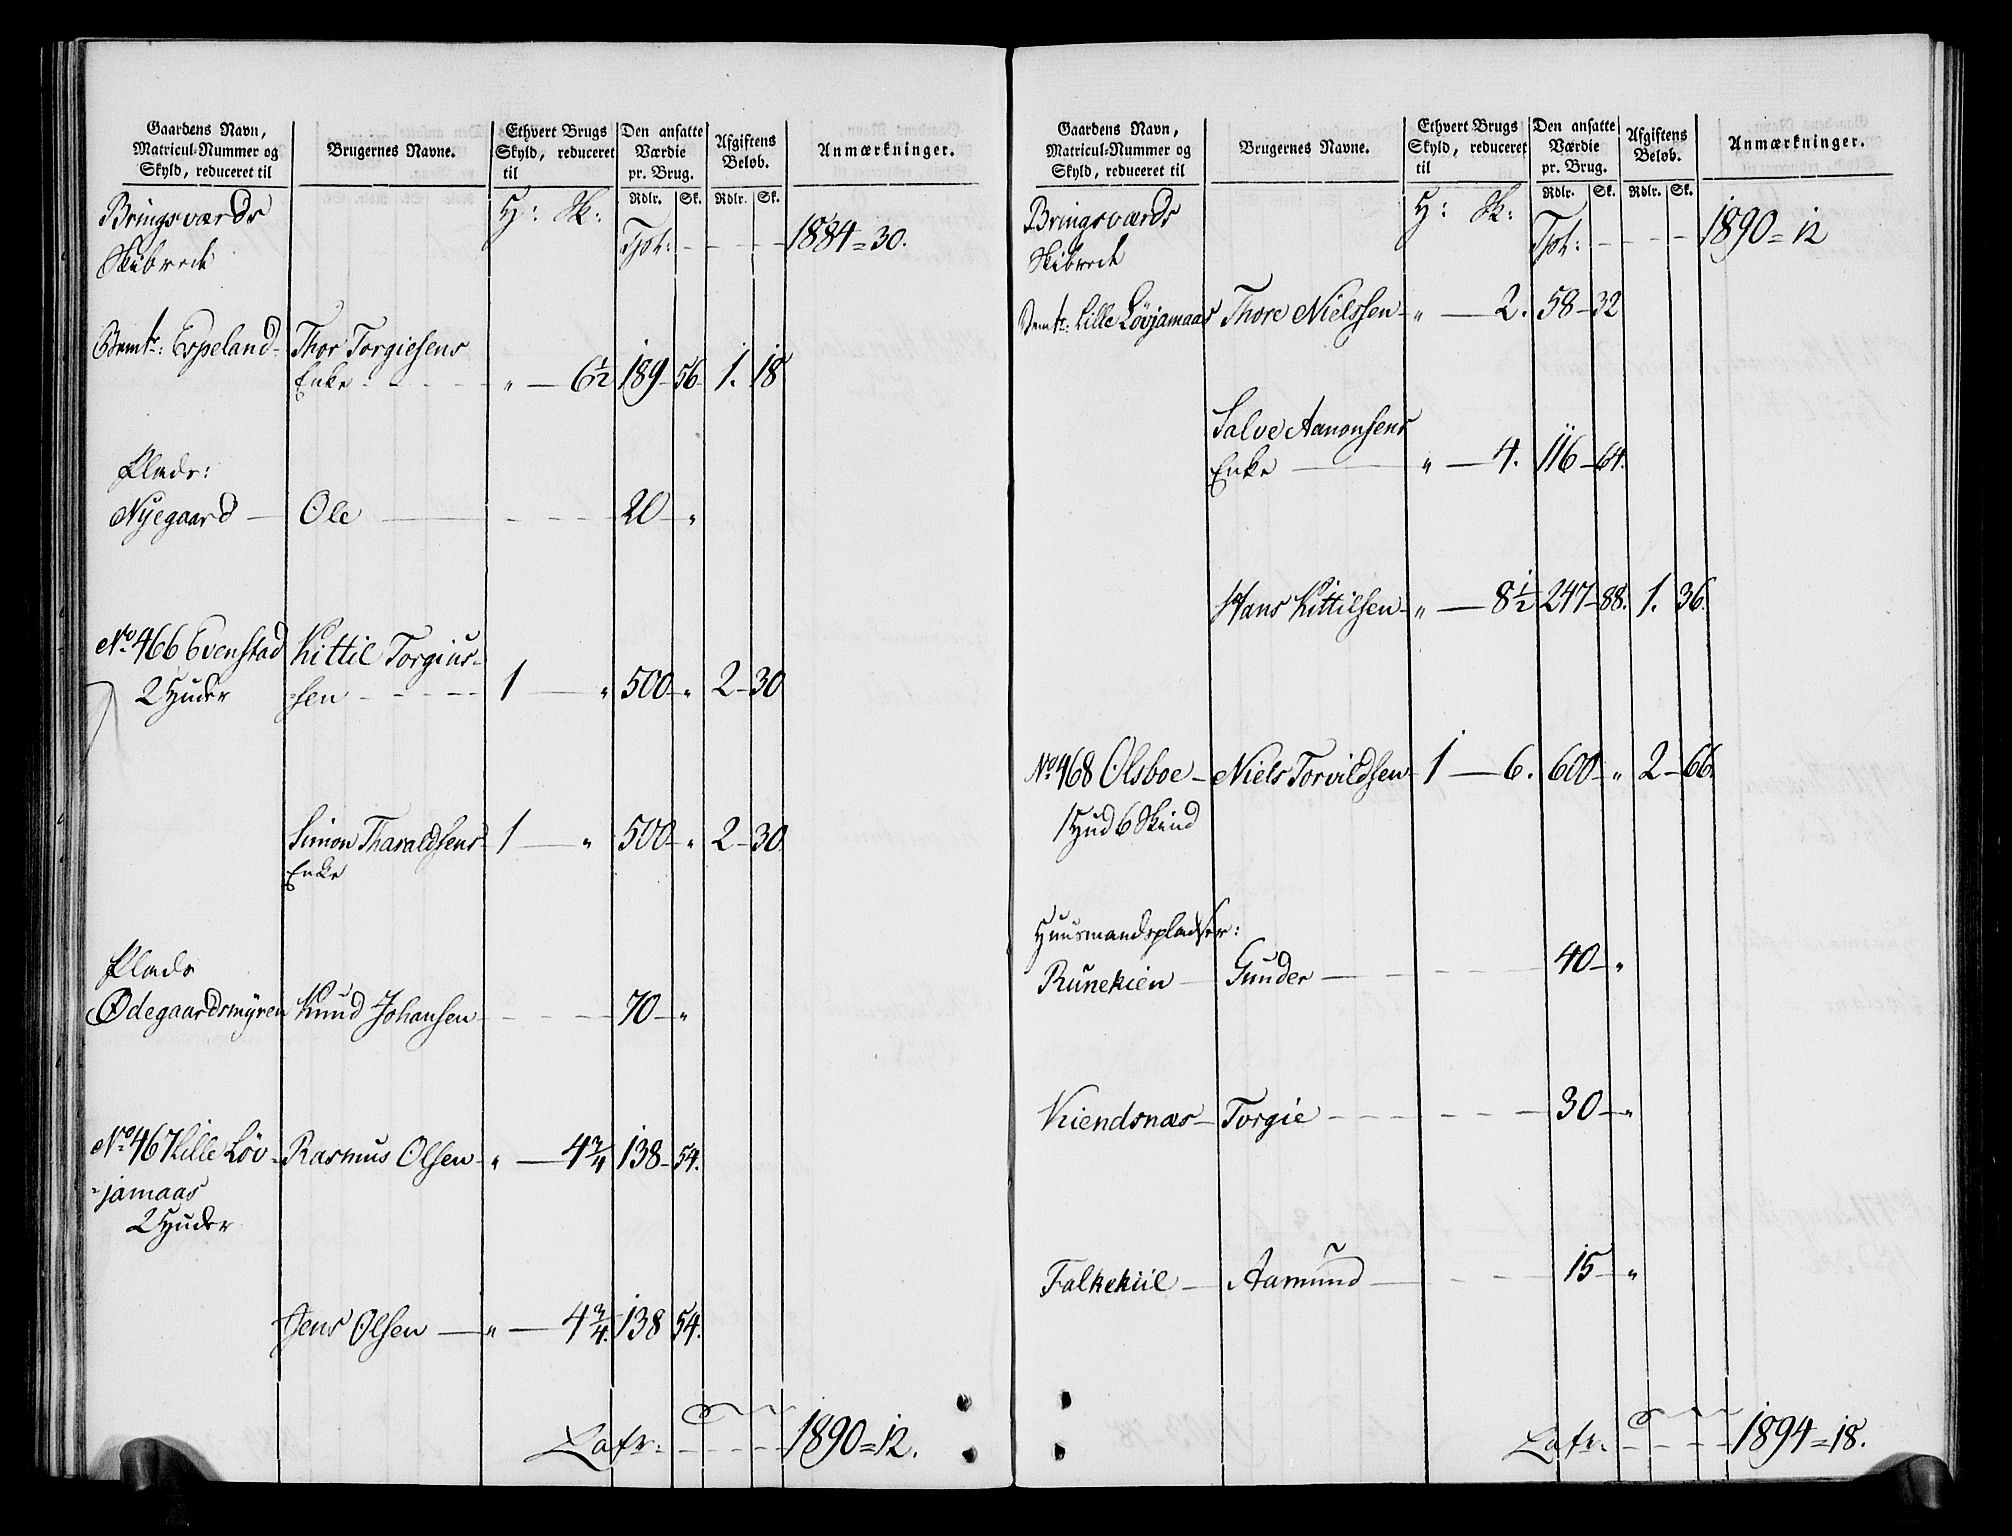 Gaardens Navn,
Matricul-Nummer og
Skyld, reduceret til
Brugernes Navne.
Ethvert Brugs
Skyld, reduceret
til
Den ansatte
Værdie
pr. Brug.
Afgiftens
Beløb.
Anmærkninger.
Rdlr. Sk. Rdlr. Sk.
Bringsværds
Skibrede
H: Sk:
Tpt: - - - - 1884 = 30.
Espeland - Thor Torgiesens
Enke - - - - " - 6½ 189 - 56 1. 18
Plads:
Nyegaard - Ole - - - - 20 - "
No. 466 Evenstad Kittil Torgius-
2 Huder =sen - - - - 1 - " 500 - " 2 - 30
Simon Tharaldsens 1 - " 500 - " 2 - 30.
Enke
Plads
Ødegaardsmyren Knud Johansen - - - - 70 - "
No. 467 Lille Løv- Rasmus Olsen - " - 4¾ 138 - 54.
=jamaas
2 Huder
Jens Olsen - " - 4¾ 138 54.
Lafr: - - - - 1890 = 12.
Gaardens Navn,
Matricul-Nummer og
Skyld, reduceret til
Brugernes Navne.
Ethvert Brugs
Skyld, reduceret
til
Den ansatte
Værdie
pr. Brug.
Afgiftens
Beløb.
Anmærkninger.
Rdlr. Sk. Rdlr. Sk.
Bringsværds
Skibrede
H: Sk:
Tpt: - - - - 1890 = 12
Lille Løvjamaas Thore Nielssen - " - 2. 58 - 32
Salve Aanonsens
Enke - " - 4. 116 - 64.
Hans Kittilsen - " - 8½ 247 - 88. 1. 36.
No. 468 Olsboe - Niels Torvildsen - 1 - 6. 600 - " 2 - 66.
1 Hud 6 Skind
Huusmandspladser:
Runekien - Gunder - - - - 40 - "
Kiendsnæs - Torgie - - - - 30 - "
Falkekiil - Aamund - - - - 15 - "
Lafr: - - - - 1894 = 18.